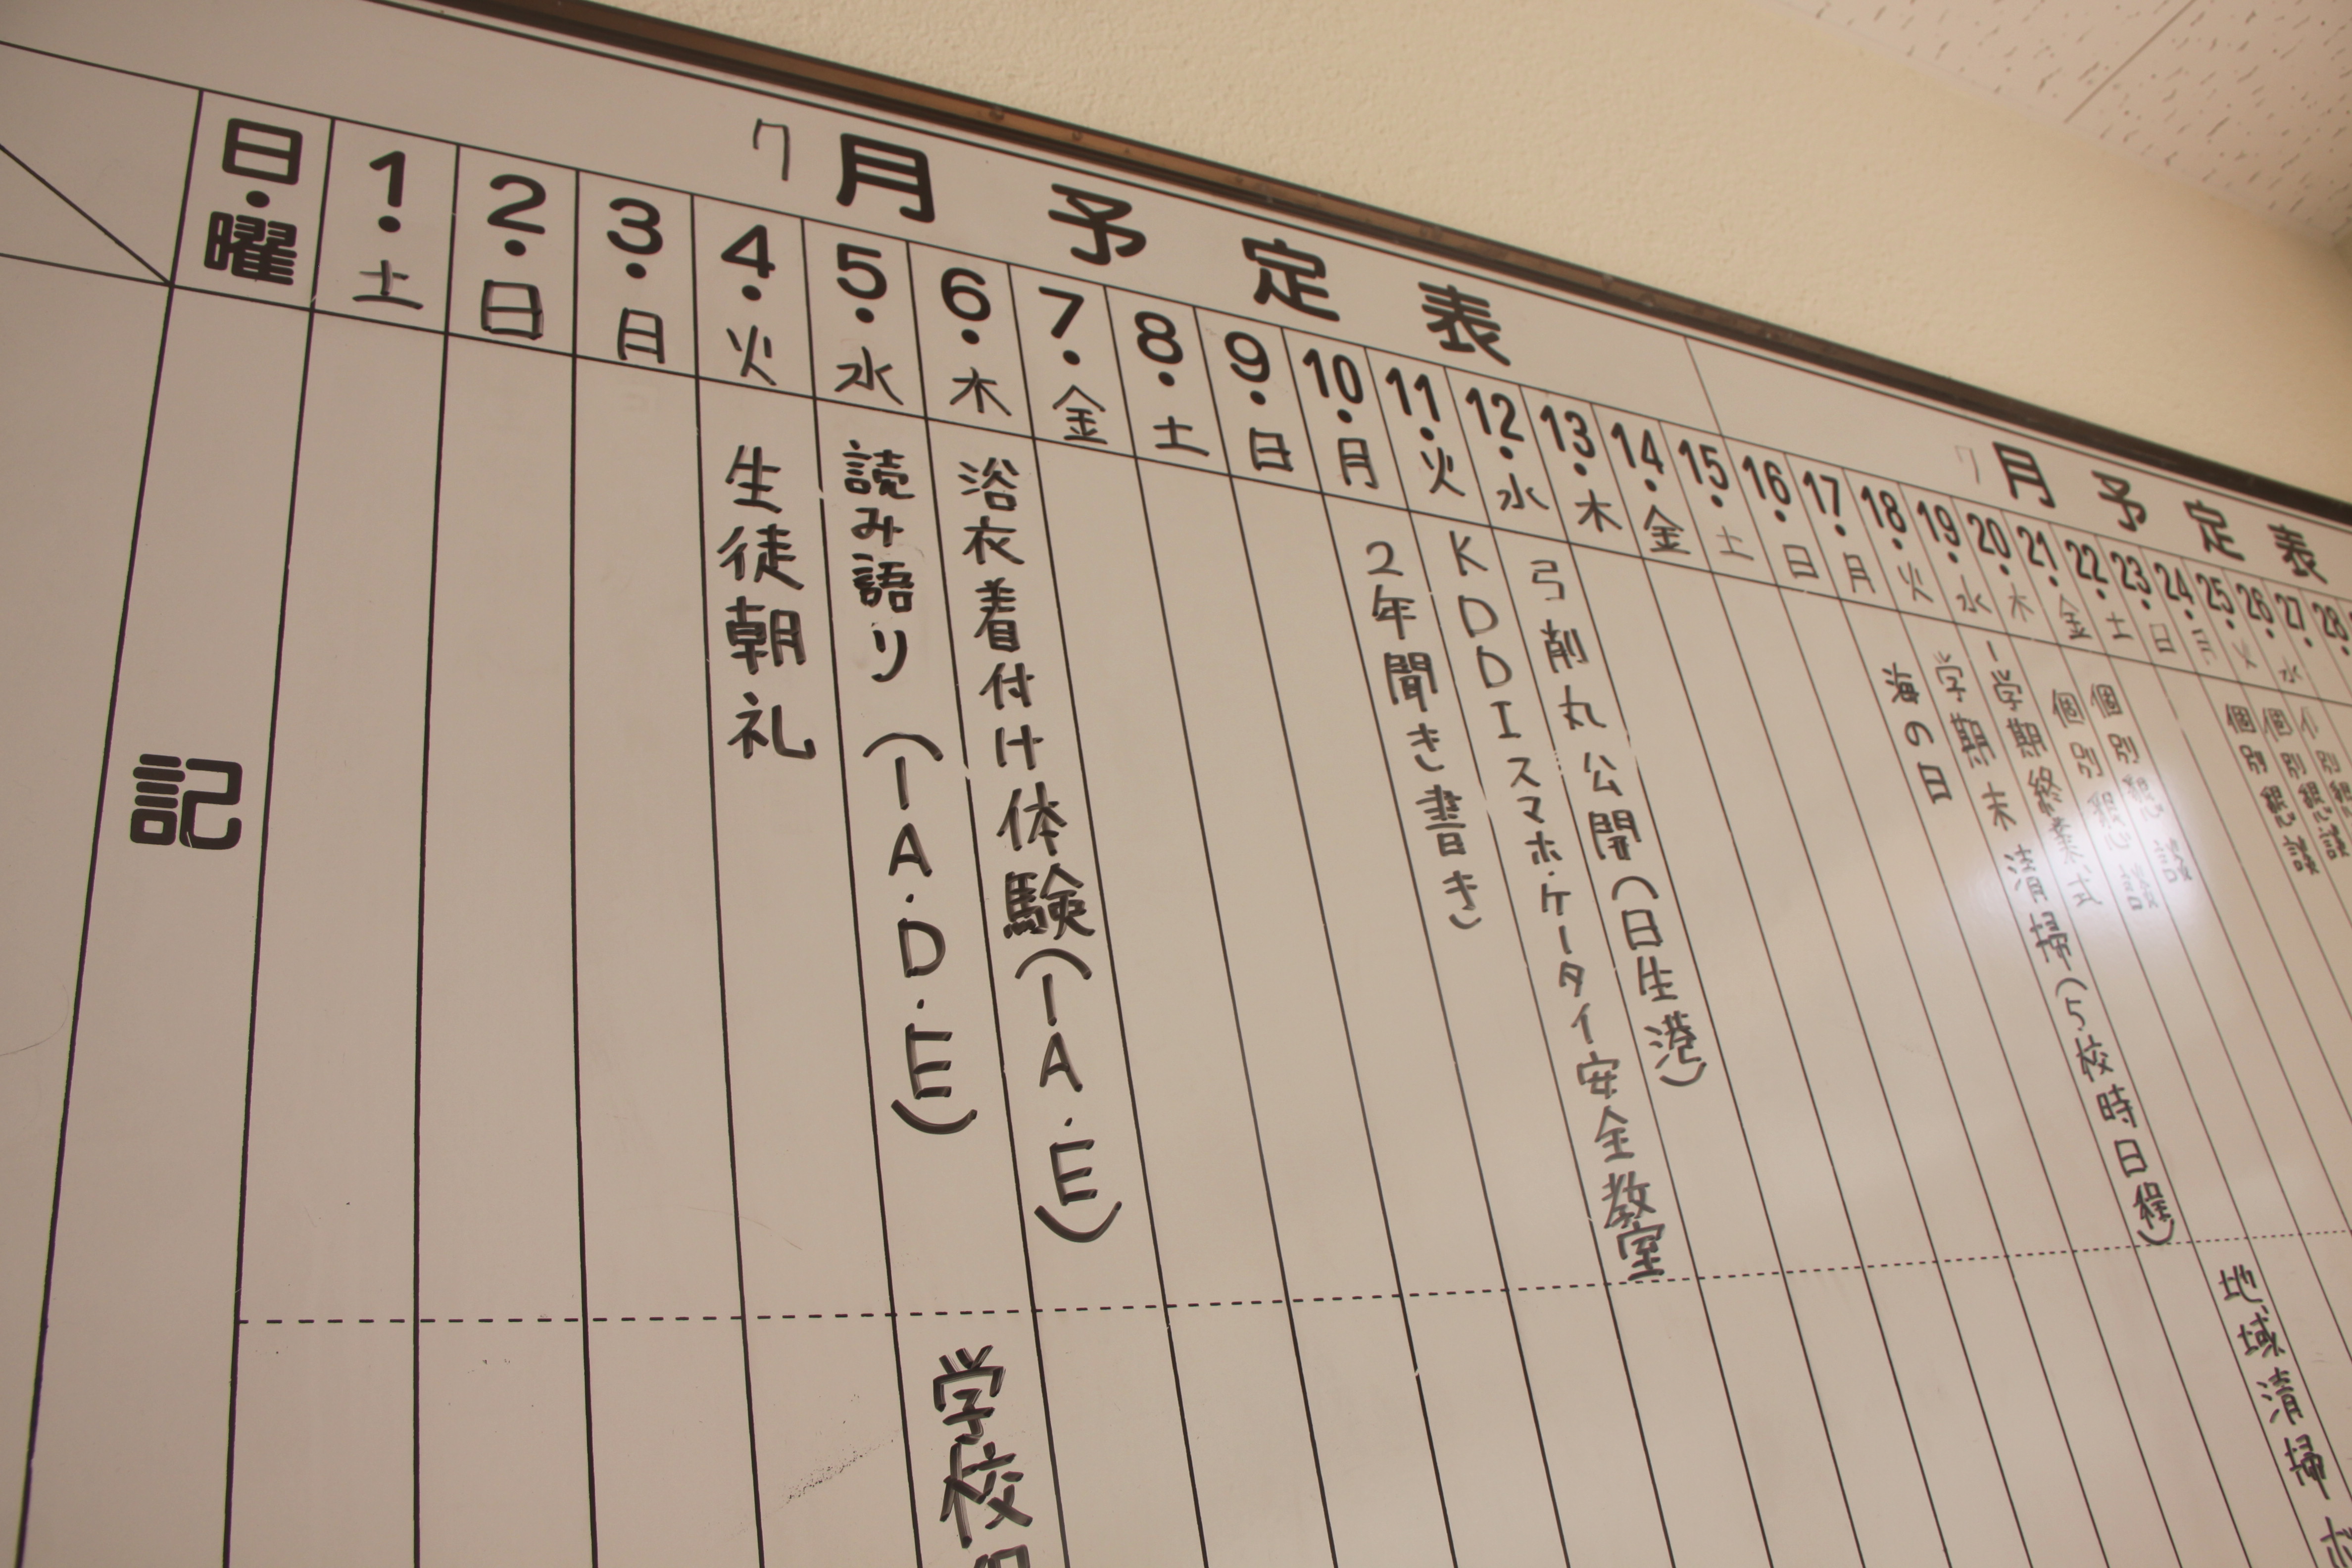 7月予定表
7月予定表
日・曜
1・土
2・日
3・月
4・火
5・水
6・木
7・金
8・土
9・日
10・月
11・火
12・水
13・木
14・金
15・土
16・日
17・月
18・火
19・水
20・木
21・金
22・土
23・日
24・月
25・火
26・水
27・
28・
記
生徒朝礼
読み語り(1A・D・E)
学校
浴衣着付け体験(1A・E)
2年聞き書き
KDDIスマホ・ケータイ安全教室
弓削丸公開(日生港)
海の日
学期末清掃(5校時日程)
1学期終業式
個別懇談
個別懇談
地域清掃
個別懇談
個別懇談
別懇